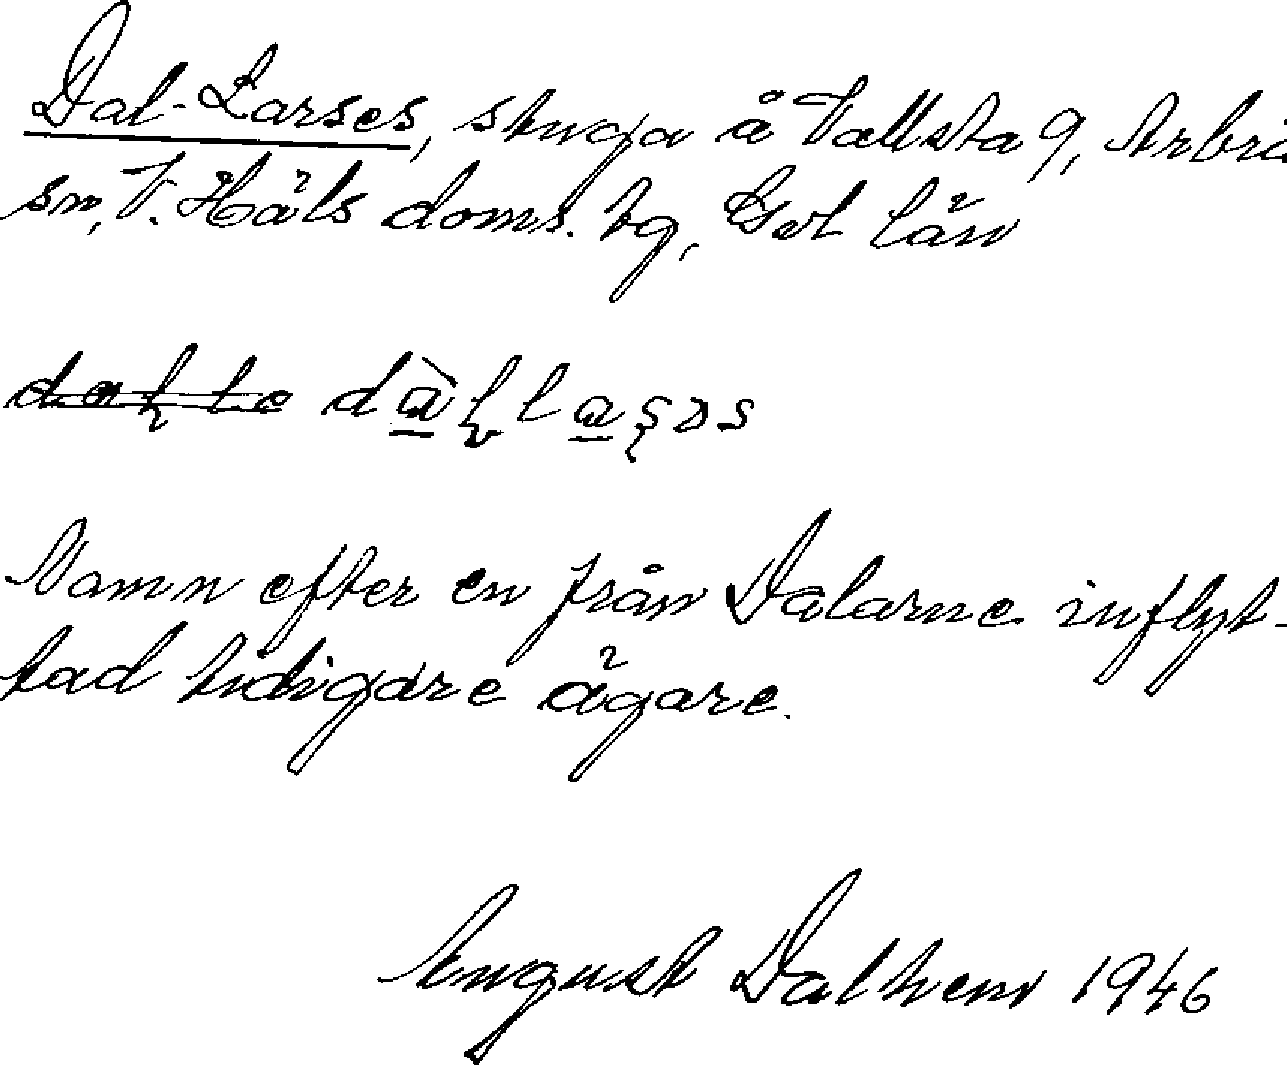 Dal-Larses, stuga å Vallsta 9, Arbrå
sn, V. Häls doms. tg, Gvl län
Namn efter en från Dalarne inflyt-
tad tidigare ägare.
August Dalhem 1946